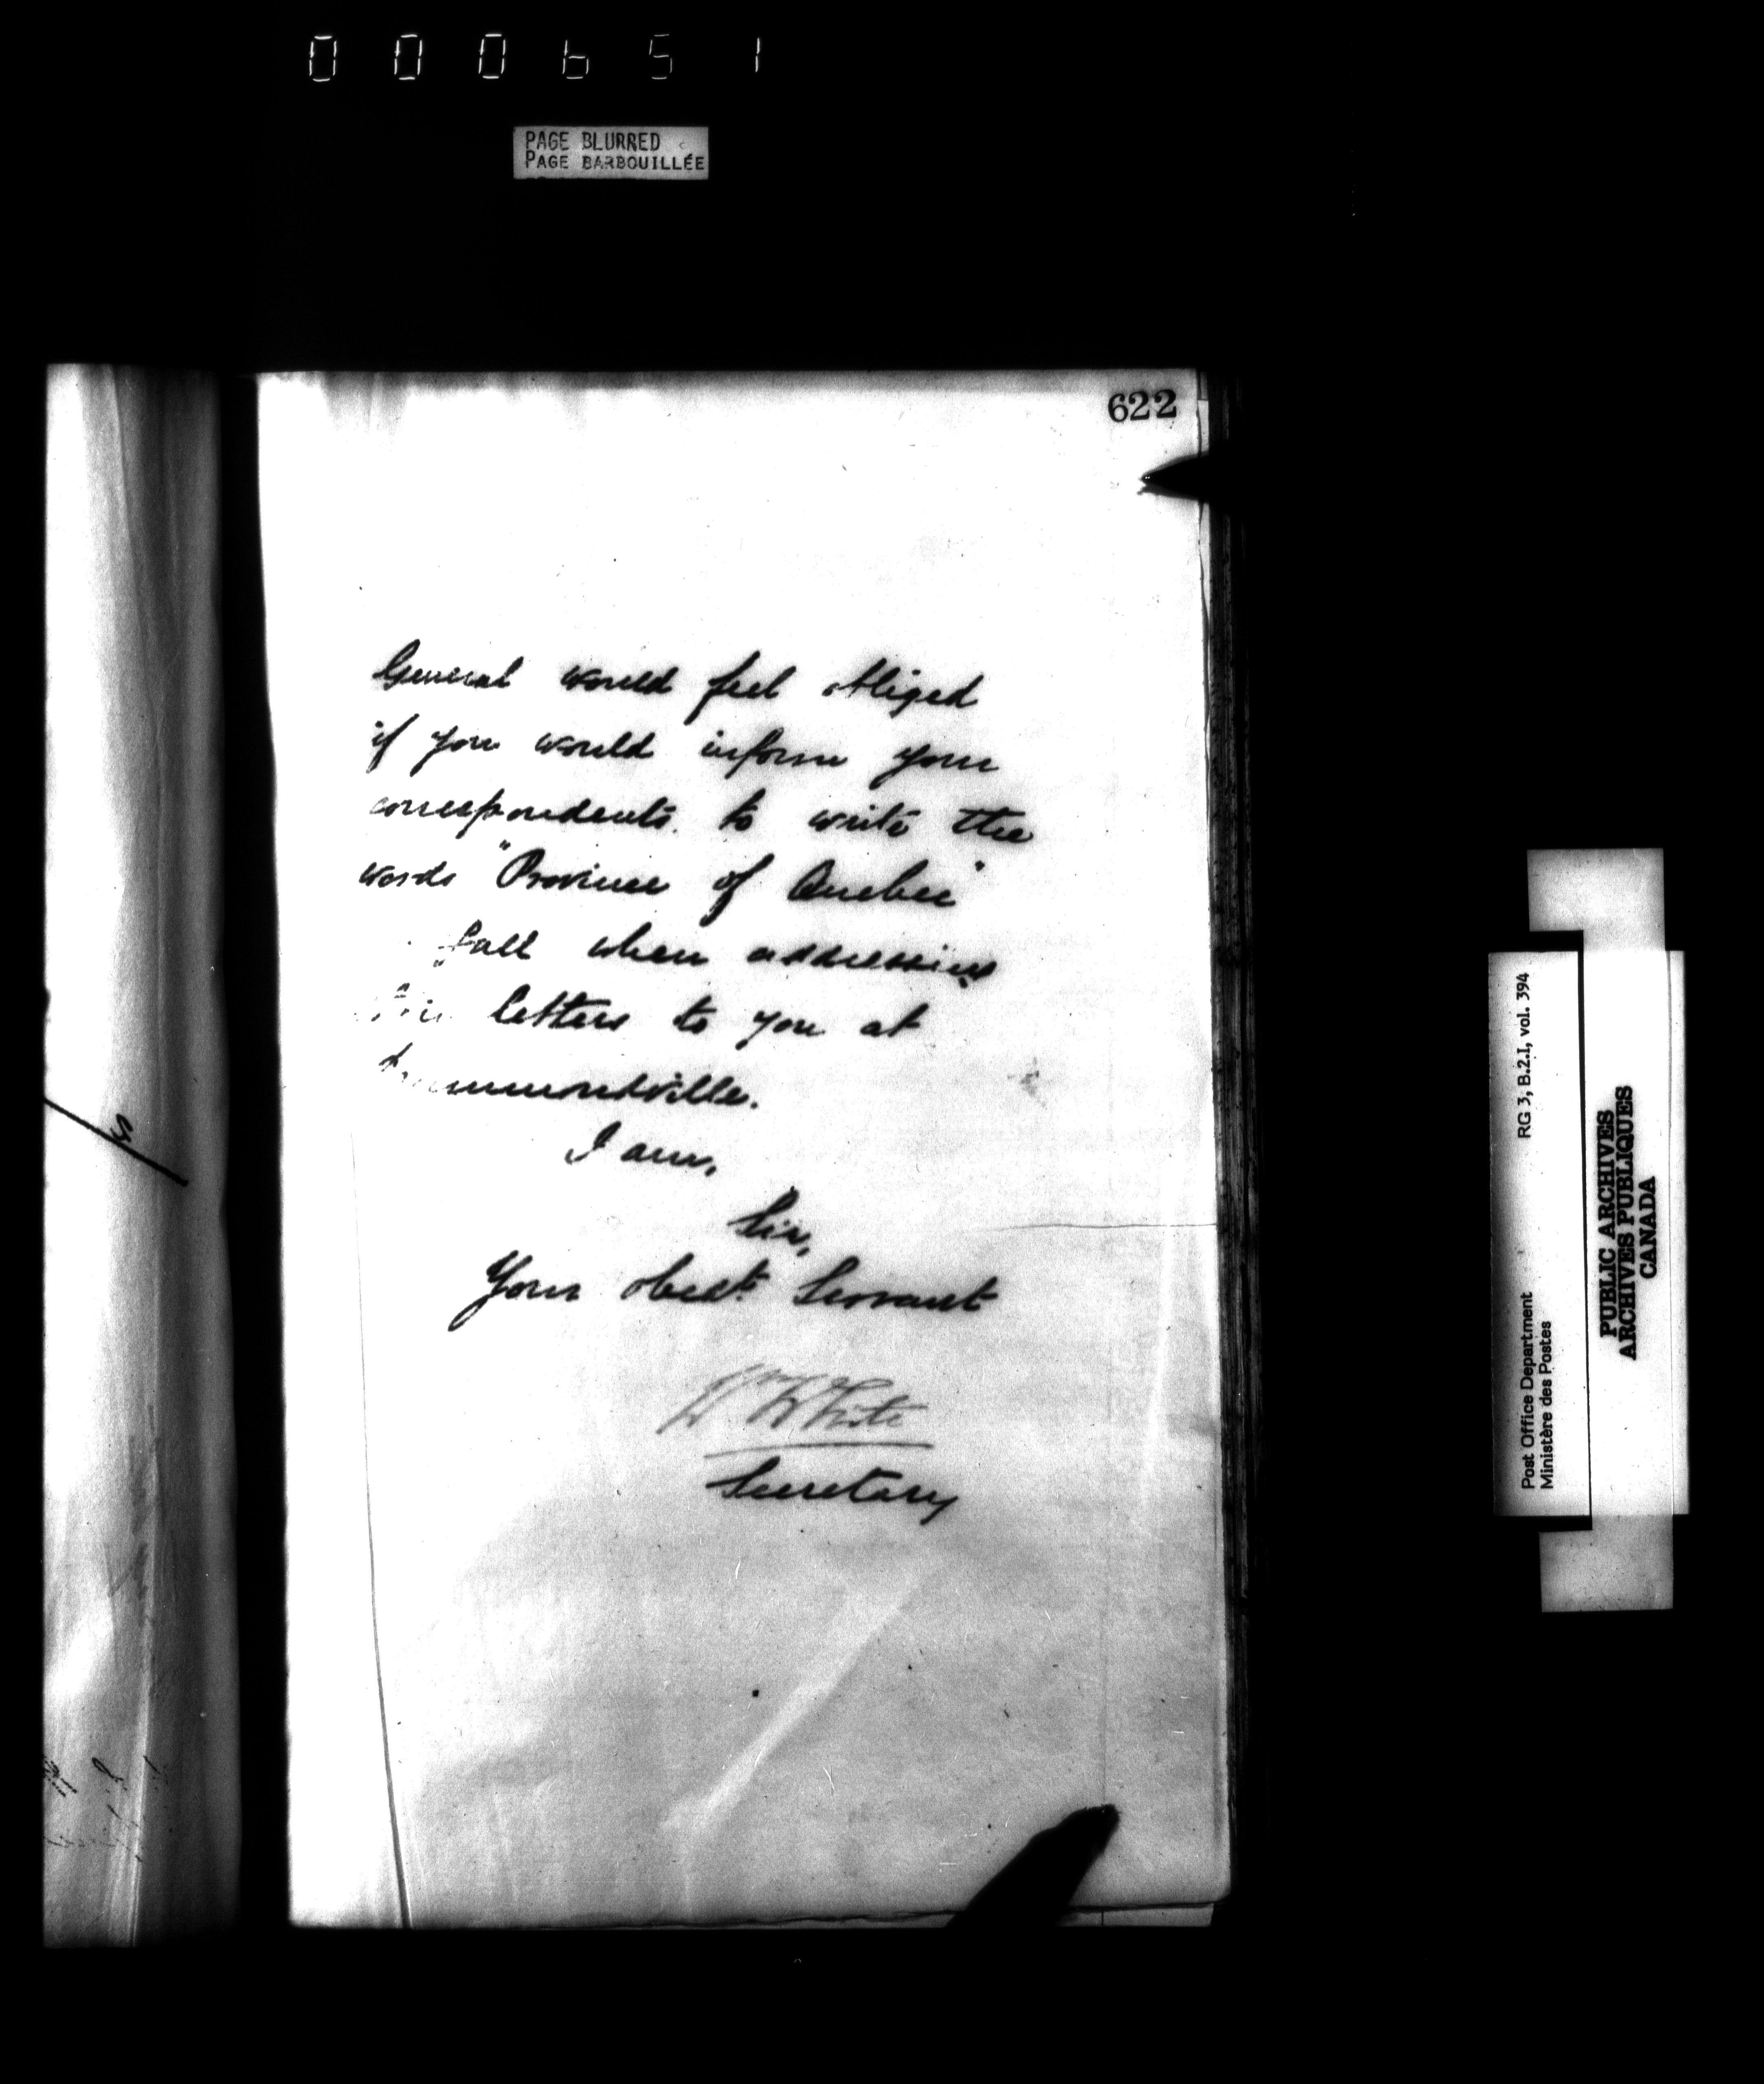 000651
PAGE BLURRED
PAGE BARBOUILLÉE
622
General would feel obliged
if you would inform your
correspondents to write the
words "Province of Quebec"
full when addressing
letters to you at
Drummondville.
I am,
Sir,
Your obedt. Servant
Wm White
Secretary
5
RG 3, B.2.I, vol. 394
Post Office Department
Ministère des Postes
PUBLIC ARCHIVES
ARCHIVES PUBLIQUES
CANADA